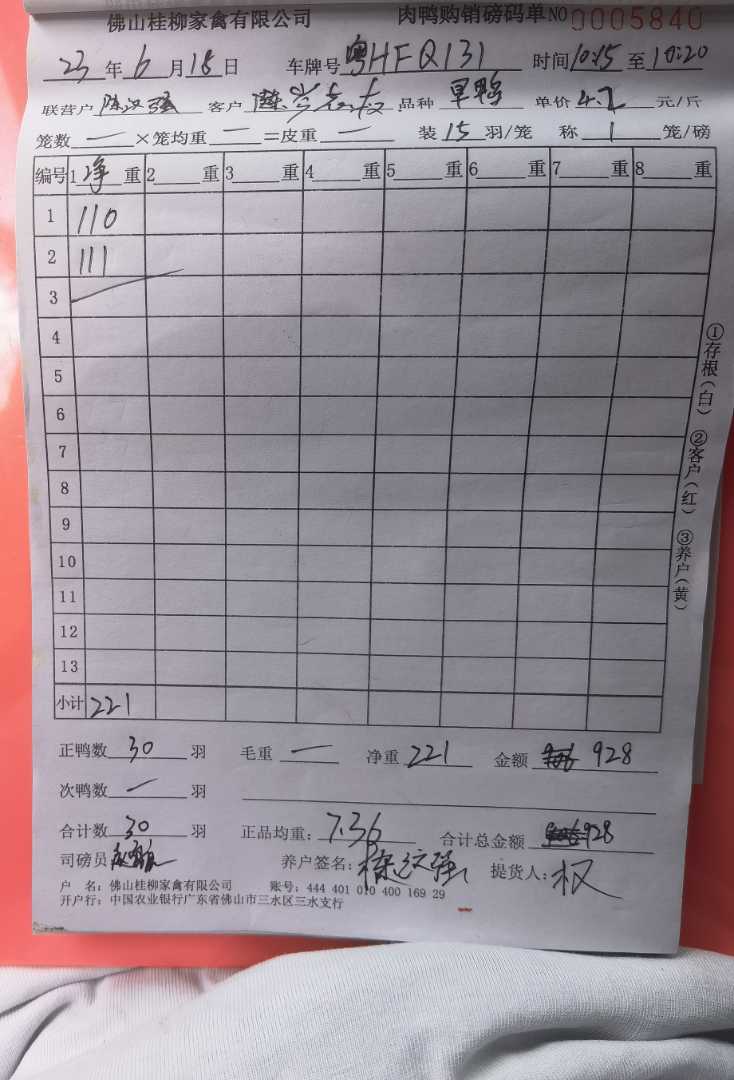 佛山桂柳家禽有限公司 肉鸭购销磅码单 NO 0005840
23年6月18日 车牌号粤HFQ131 时间10:15至10:20
联营户陈汉强 客户 品种旱鸭 单价4.2元/斤
笼数一×笼均重一=皮重一 装15羽/笼 称1笼/磅
编号 1净重 2重 3重 4重 5重 6重 7重 8重
1 110
2 111
3
4
5
6
7
8
9
10
11
12
13
小计 221
正鸭数30羽 毛重一 净重221 金额928
次鸭数一羽
合计数30羽 正品均重:7.36 合计总金额928
司磅员 养户签名:陈汉强 提货人:权
户 名:佛山桂柳家禽有限公司 账号:444 401 010 400 169 29
开户行:中国农业银行广东省佛山市三水区三水支行
①存根(白) ②客户(红) ③养户(黄)